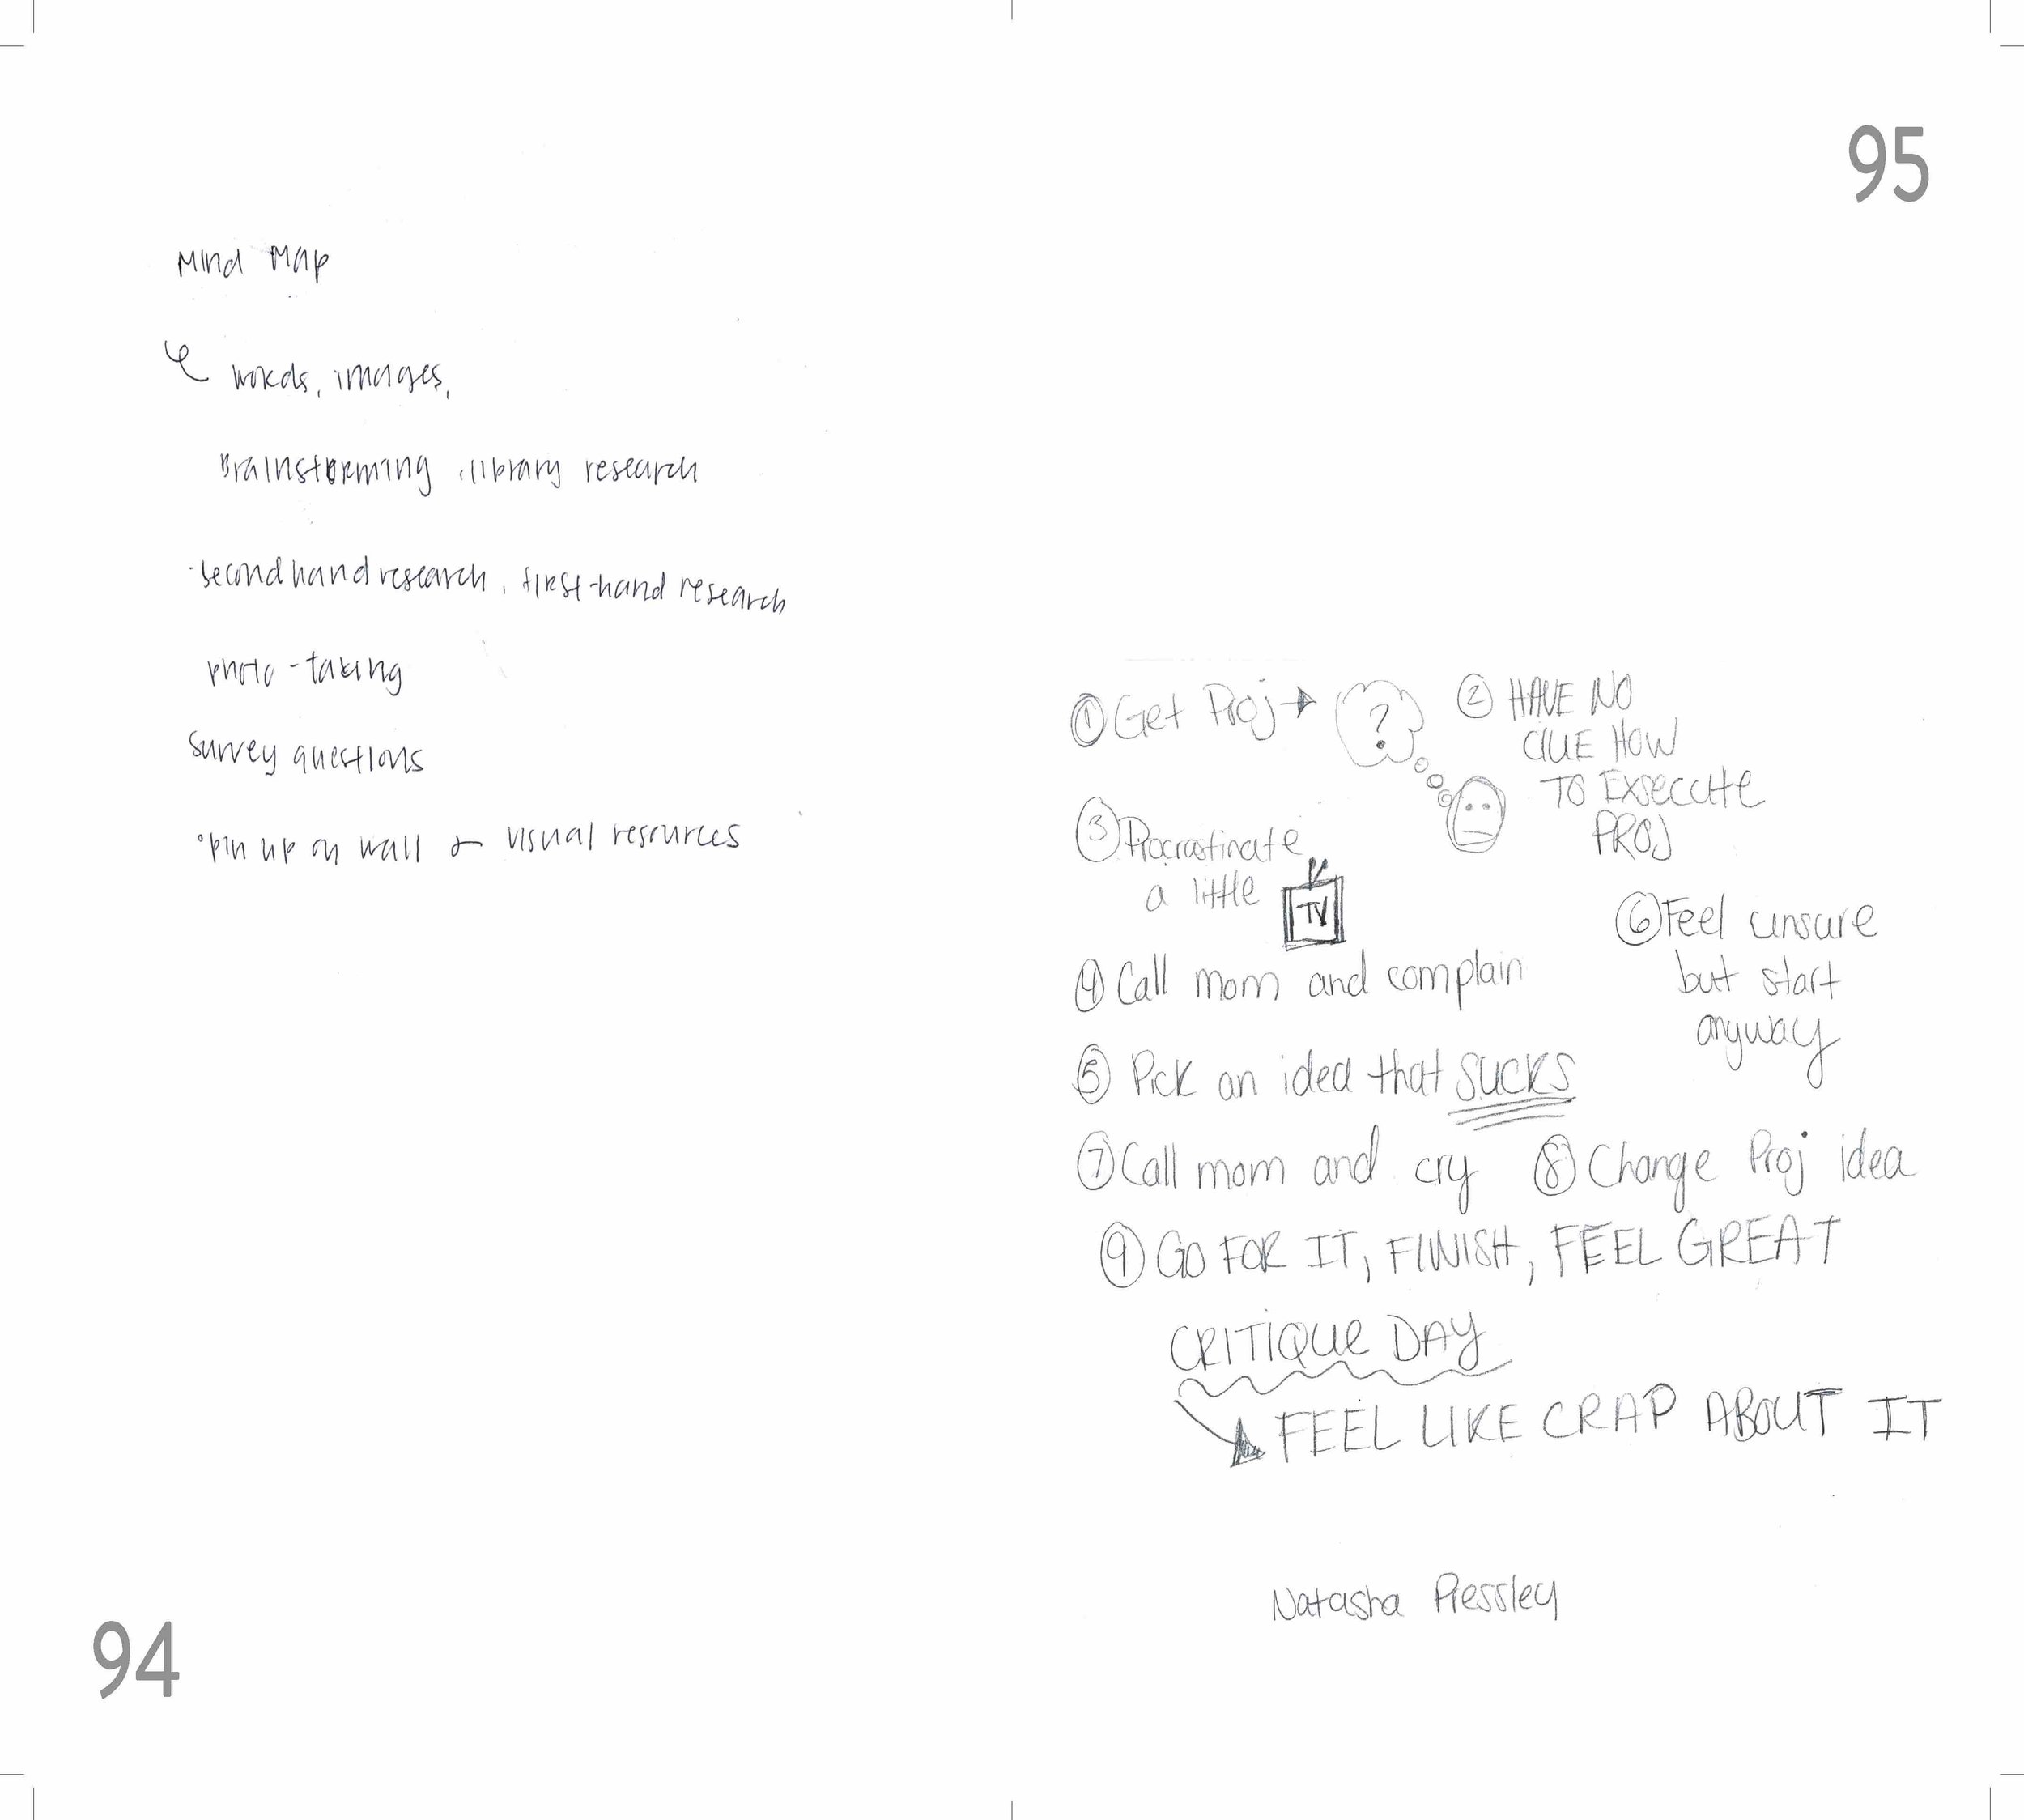 Mind Map
words, images,
Brainstorming, library research
·secondhand research, first-hand research
photo-taking
survey questions
·pin up on wall & visual resources
94
95
① Get Proj → ?
② HAVE NO
CLUE HOW
TO EXSECUTE
PROJ
③ Procrastinate
a little TV
④ Call mom and complain
⑤ Pick an idea that SUCKS
⑥ Feel unsure
but start
anyway
⑦ Call mom and cry ⑧ Change Proj idea
⑨ GO FOR IT, FINISH, FEEL GREAT
CRITIQUE DAY
FEEL LIKE CRAP ABOUT IT
Natasha Pressley